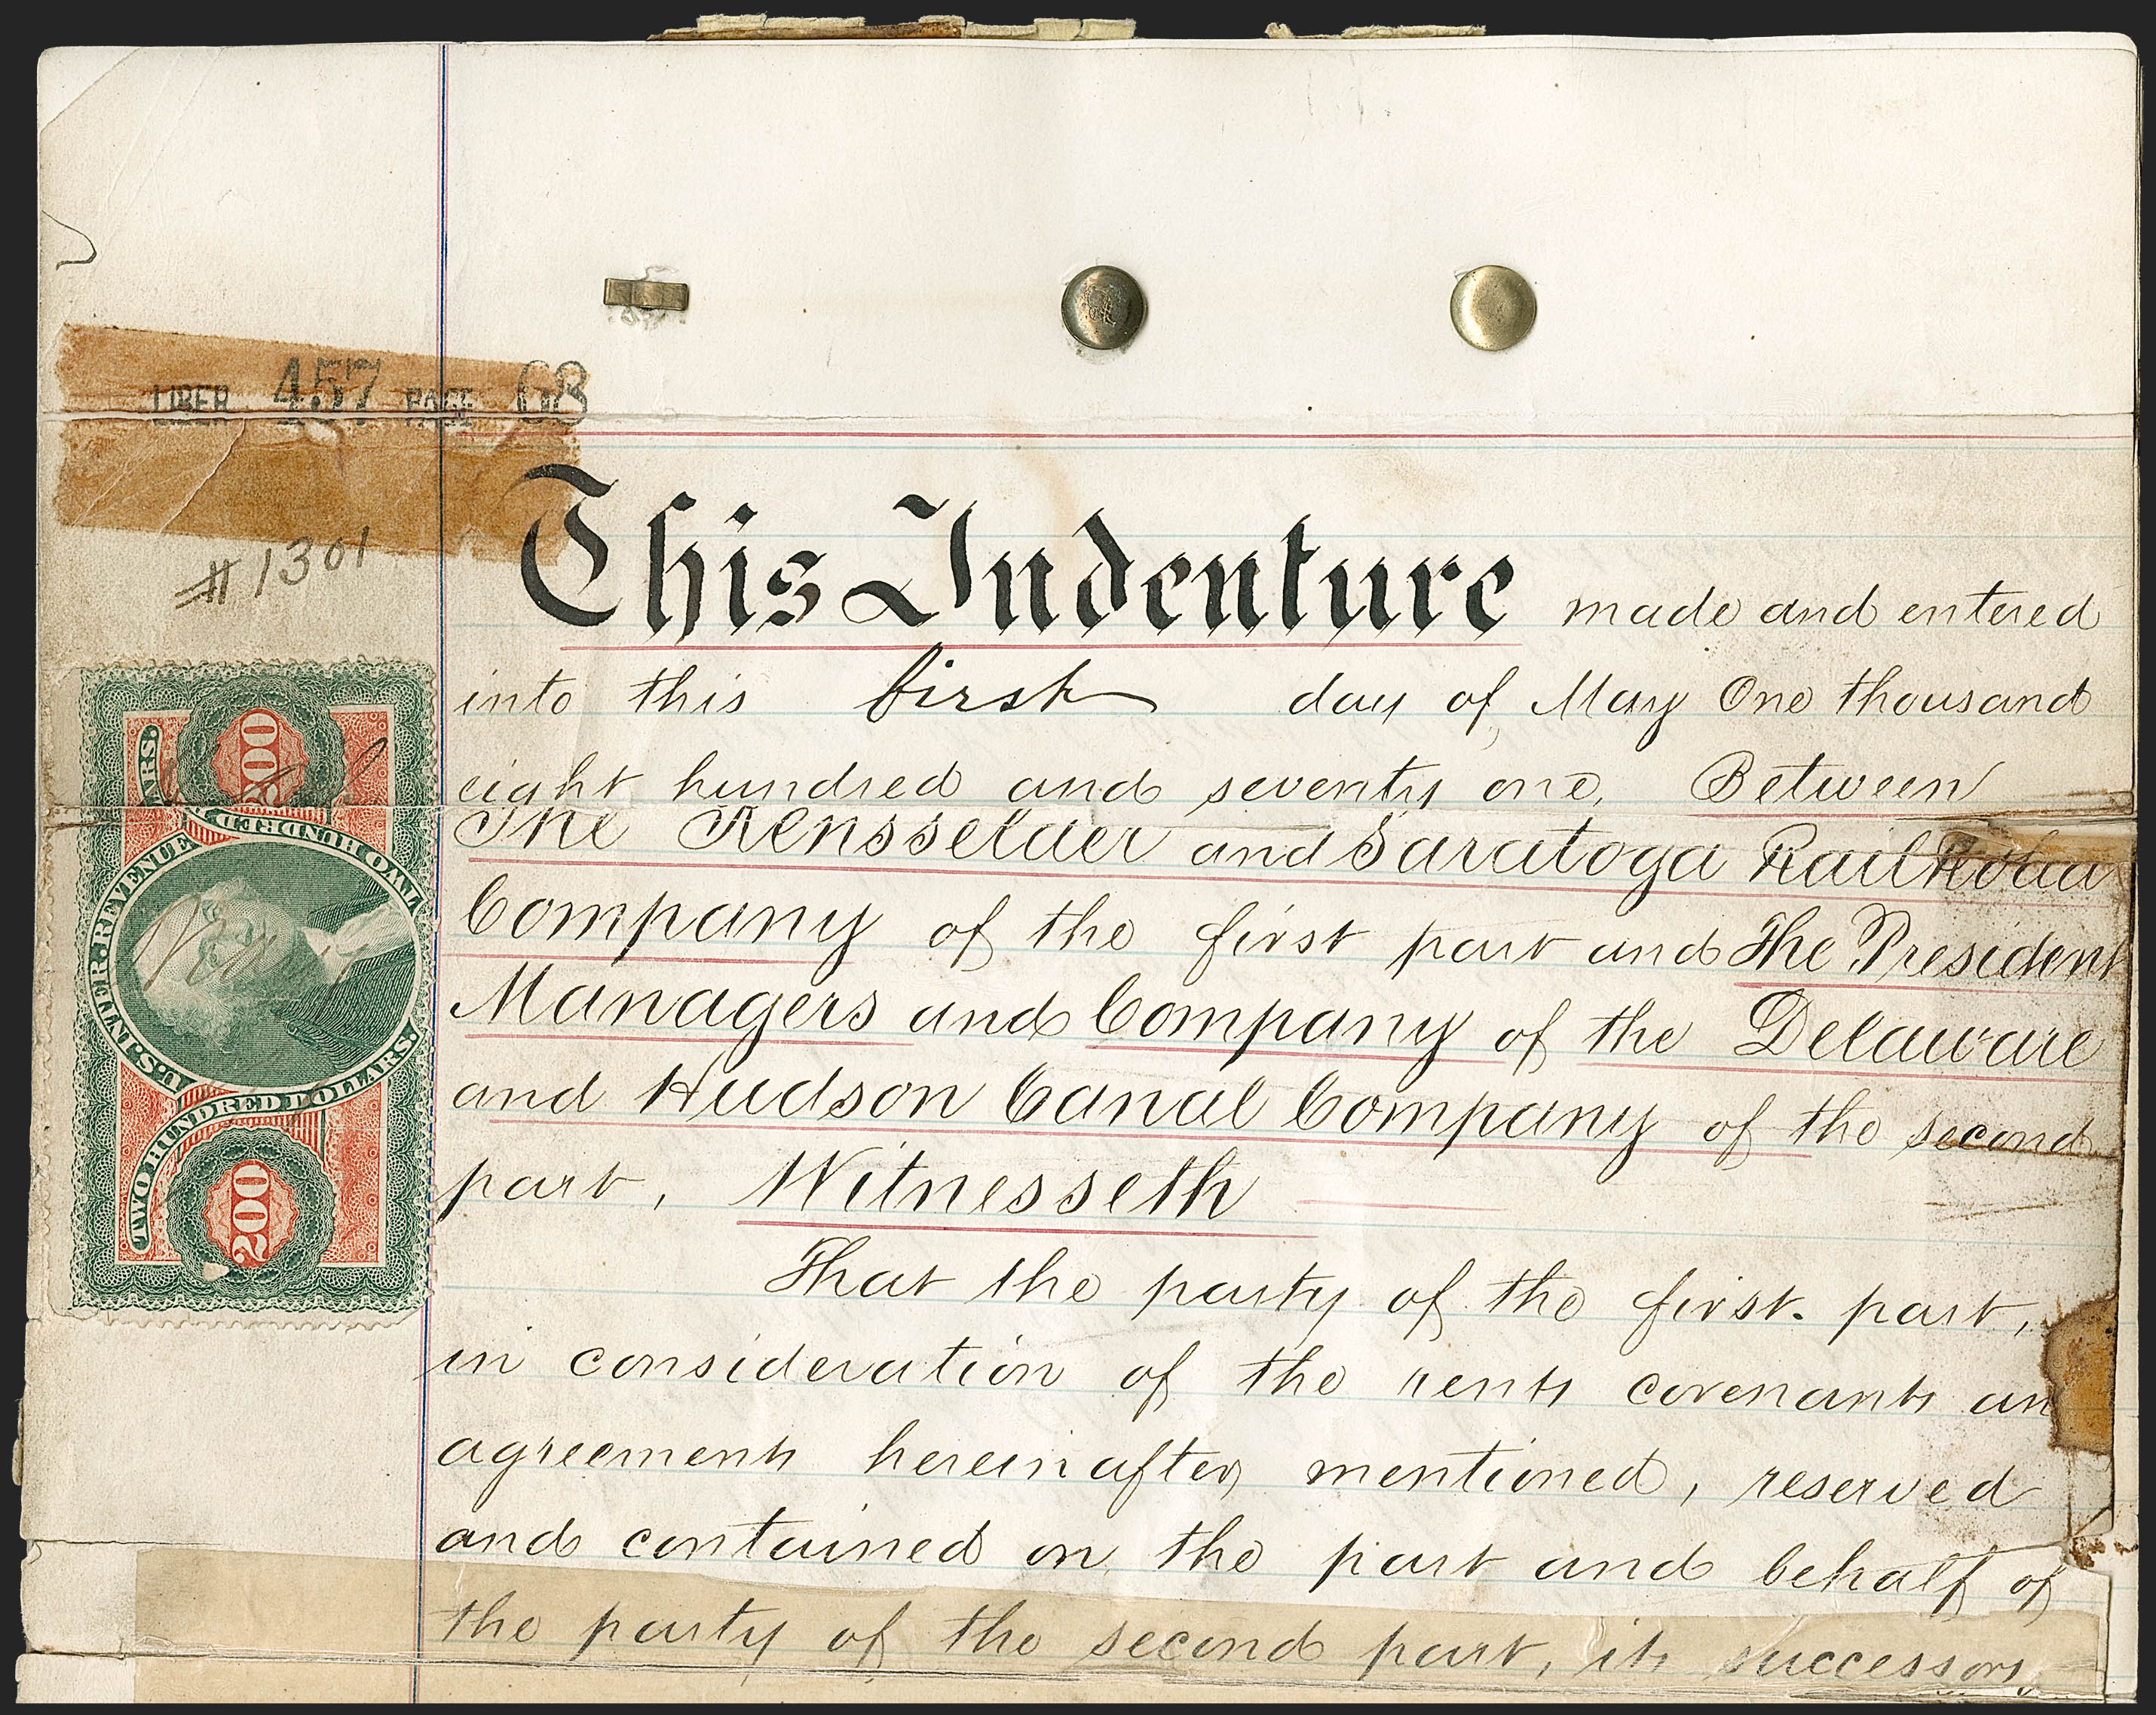 LIBER 457 PAGE 68
# 1301
This Indenture made and entered
into this first day of May One thousand
eight hundred and seventy one, Between
The Rensselaer and Saratoga Rail Road
Company of the first part and The President
Managers and Company of the Delaware
and Hudson Canal Company of the second
part, Witnesseth
That the party of the first part,
in consideration of the rents covenants an
agreements hereinafter mentioned, reserved
and contained on the part and behalf of
the party of the second part, its successors
200
TWO HUNDRED DOLLARS.
U.S. INTER. REVENUE
TWO HUNDRED DOLLARS.
200